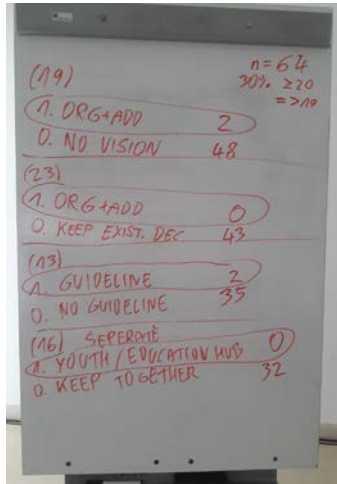 n=64
30% ≥20
=>19
(19)
1. ORG+ADD 2
0. NO VISION 48
(23)
1. ORG+ADD 0
0. KEEP EXIST. DEC 43
(13)
1. GUIDELINE 2
0. NO GUIDELINE 35
(16) SEPERATE
1. YOUTH/EDUCATION HUB 0
0. KEEP TOGETHER 32